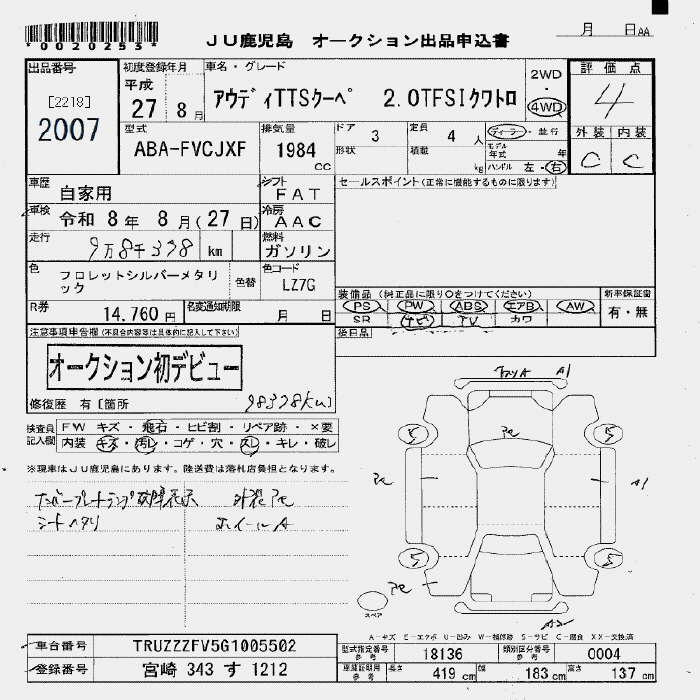 *0020253*
JU鹿児島 オークション出品申込書
月 日AA
出品番号
[2218]
2007
初度登録年月
平成
27 8月
車名・グレード
アウディTTSクーペ 2.0TFSIクワトロ
2WD
・
4WD
評価点
4
外装 内装
C C
型式
ABA-FVCJXF
排気量
1984
CC
ドア 3
形状
定員 4 人
積載 kg
ディーラー・並行
モデル年式 年
ハンドル 左・右
車歴
自家用
シフト
FAT
セールスポイント(正常に機能するものに限ります)
車検
令和 8年 8月(27日)
冷房
AAC
走行
9万8千378 km
燃料
ガソリン
色
フロレットシルバーメタリック
色替
色コード
LZ7G
R券
14,760円
名変通知期限
月 日
装備品(純正品に限り○をつけてください)
PS PW ABS エアB AW
SR ナビ TV カワ
新車保証書
有・無
後日品
注意事項申告欄(不具合内容等は具体的に記入して下さい)
オークション初デビュー
修復歴 有[箇所
98378km
検査員記入欄
FW キズ・飛石・ヒビ割・リペア跡・×要
内装 キズ・汚レ・コゲ・穴・スレ・キレ・破レ
※現車はJU鹿児島にあります。陸送費は落札店負担となります。
ナンバープレートランプ故障表示 外装アセ
シートヘタリ ホイールA
A1
5 5
A1
5 5
A2
スペア
A-キズ E-エクボ U-凹み W-補修跡 S-サビ C-腐食 XX-交換済
車台番号 TRUZZZFV5G1005502
登録番号 宮崎 343 す 1212
型式指定番号 参考 18136 類別区分番号 参考 0004
車庫証明用 参考 長さ 419 cm 幅 183 cm 高さ 137 cm